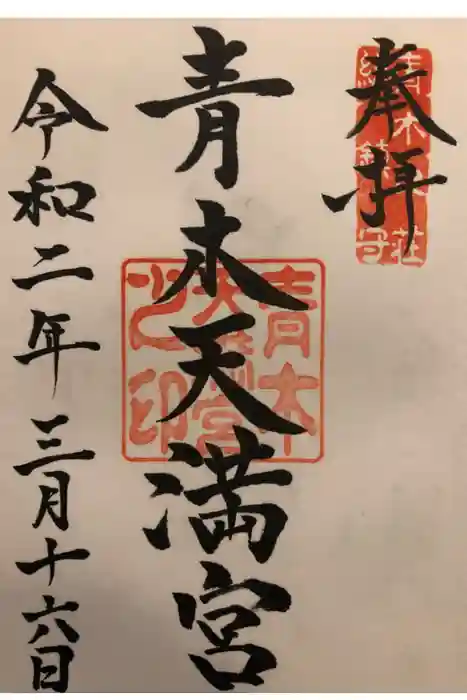 奉拝
青木天満宮
令和二年三月十六日
青木
天満宮
之印